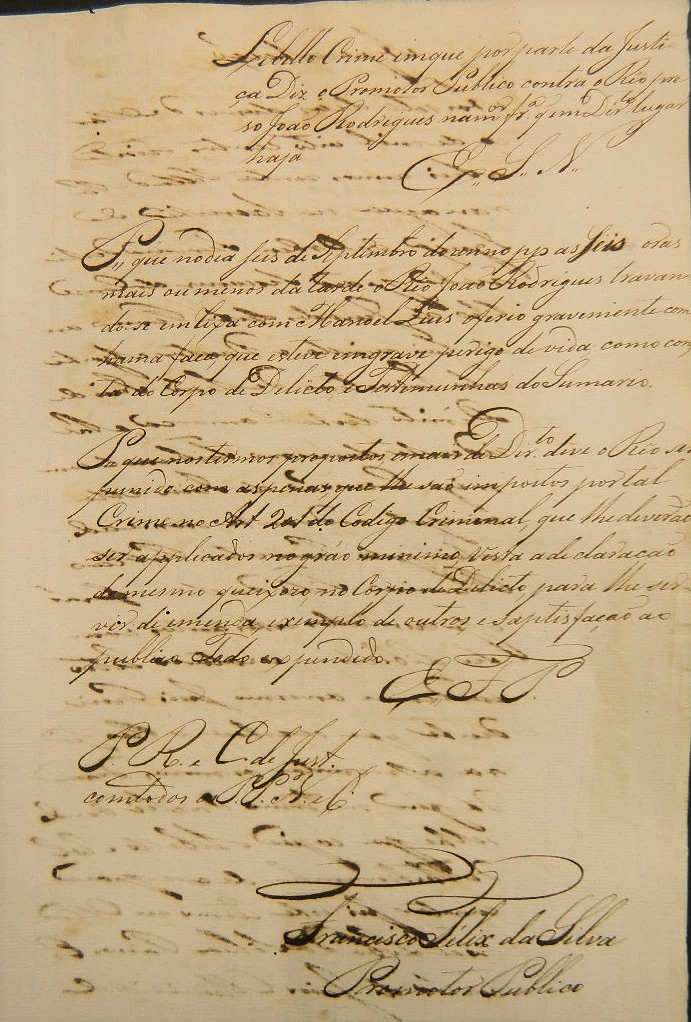 Libello Crime emque por parte da Justi-
ça Diz o Promotor Publico contra o Réo pre
so João Rodrigues na mor. fr.ª q em Dir.to lugar
haja
E., S. N.
P., que no dia seis de Septembro do anno pp as seis oras
mais ou menos da tarde o Réo João Rodrigues travan
do-se em lixa com Manoel Luis o ferio gravemente com
huma faca, que esteve em grave perigo de vida, como cons
ta do Corpo de Delicto e Testemunhas do Sumario.
P., que nos termos propostos e mais de Dir.to deve o Réo ser
punido com as penas, que lhe são impostas por tal
Crime no Art 201 do Codigo Criminal, que lhe deverão
ser applicadas no gráo minimo, vista a declaração
do mesmo queixozo no Corpo de Delicto para lhe ser-
vir di emenda, exemplo de outros e saptisfação ao
publico Todo expendido.
E., F. P.
P. R. e C. de Just.
com todos os P. P. N. e C.
Francisco Felix da Silva
Promotor Publico